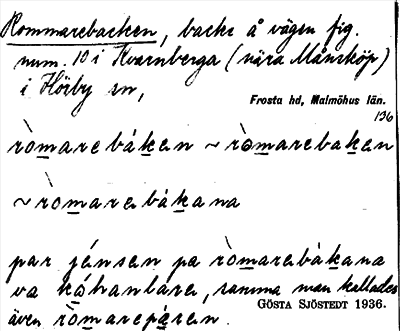 Rommarebacken, backe å vägen fig.
num. 10 i Kvarnberga (nära Månsköp)
i Hörby sn,
Frosta hd, Malmöhus län.
136
ròmarebáken ~ ròmarebaken
~ ròmarebákana
par jénsen pə ròmarebákana
va kóhanlare, samma man kallades
även ròmarepáren.
GÖSTA SJÖSTEDT 1936.